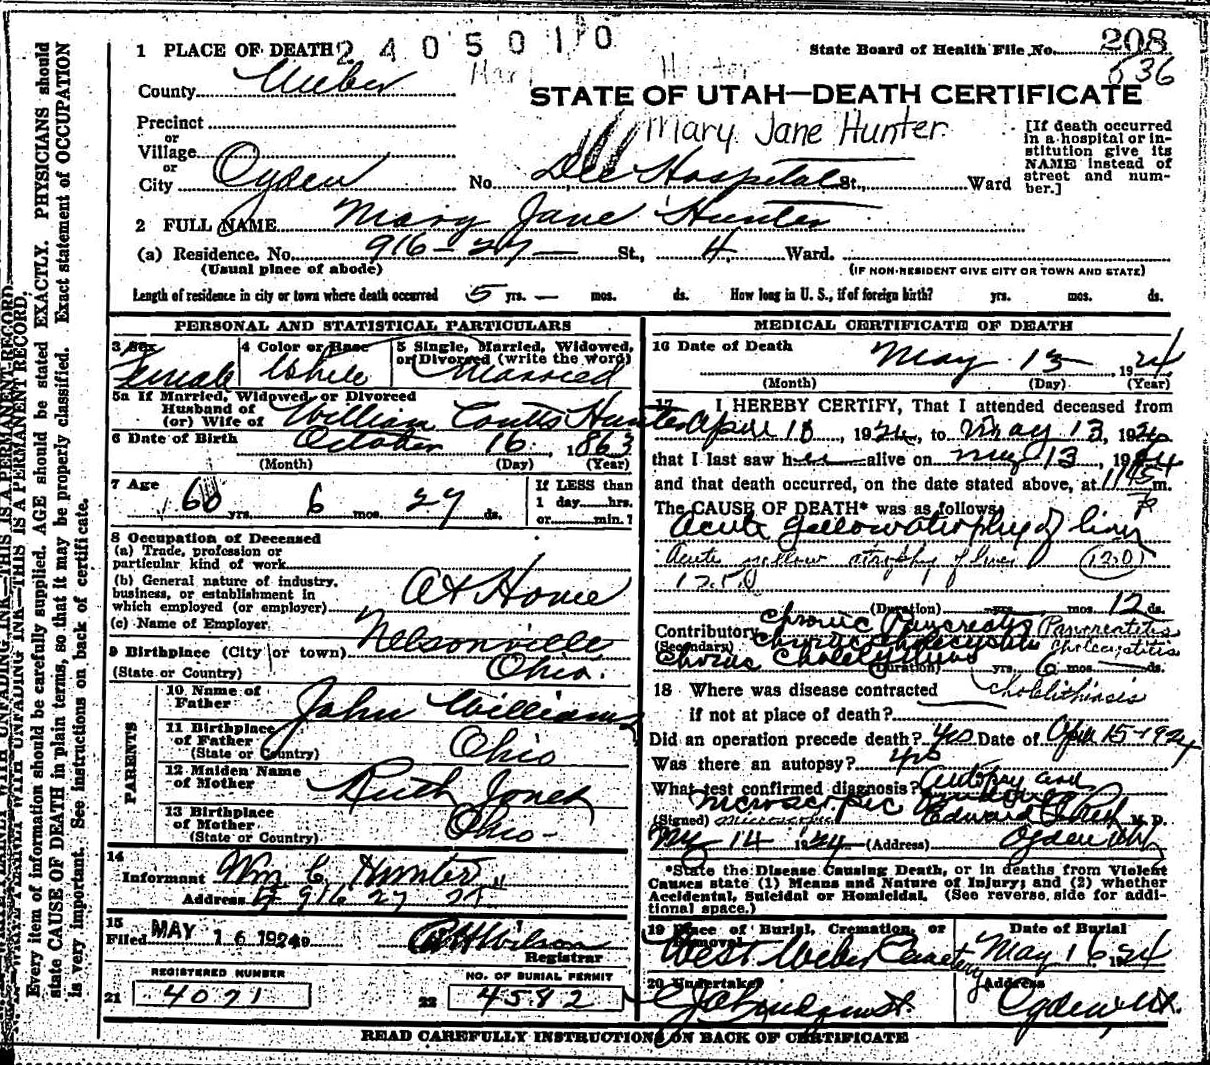 1 PLACE OF DEATH 2 4 0 5 0 1 1 0
State Board of Health File No. 208
836
County Weber
STATE OF UTAH—DEATH CERTIFICATE
Mary Jane Hunter
Precinct
or
Village
or
City Ogden No. Dee Hospital St., Ward
[If death occurred in a hospital or in-
stitution give its
NAME instead of
street and num-
ber.]
2 FULL NAME Mary Jane Hunter
(a) Residence. No. 916-27- St., 4 Ward.
(Usual place of abode)
(IF NON-RESIDENT GIVE CITY OR TOWN AND STATE)
Length of residence in city or town where death occurred 5 yrs. — mos. ds. How long in U. S., if of foreign birth? yrs. mos. ds.
PERSONAL AND STATISTICAL PARTICULARS
3 Sex Female
4 Color or Race White
5 Single, Married, Widowed,
or Divorced (write the word)
Married
5a If Married, Widowed, or Divorced
Husband of
(or) Wife of William Coutts Hunter
6 Date of Birth October 16, 1863
(Month) (Day) (Year)
7 Age 60 yrs. 6 mos. 27 ds.
If LESS than
1 day hrs.
or min.?
8 Occupation of Deceased
(a) Trade, profession or
particular kind of work
(b) General nature of industry,
business, or establishment in
which employed (or employer) At Home
(c) Name of Employer
9 Birthplace (City or town) Nelsonville
(State or Country) Ohio.
PARENTS
10 Name of
Father John Williams
11 Birthplace
of Father
(State or Country) Ohio
12 Maiden Name
of Mother Ruth Jones
13 Birthplace
of Mother
(State or Country) Ohio-
14
Informant Wm C. Hunter
Address 916 27 St
15
Filed MAY 16 1924 Wilson
Registrar
REGISTERED NUMBER
21 4071
NO. OF BURIAL PERMIT
22 4582
MEDICAL CERTIFICATE OF DEATH
16 Date of Death May 13 1924
(Month) (Day) (Year)
17 I HEREBY CERTIFY, That I attended deceased from
April 13, 1924, to May 13, 1924
that I last saw her alive on May 13, 1924
and that death occurred, on the date stated above, at 1145 P m.
The CAUSE OF DEATH* was as follows:
Acute yellow atrophy of liver
Acute yellow atrophy of liver (120)
(Duration) yrs. mos. 12 ds.
Contributory Chronic Pancreatitis Pancreatitis
(Secondary) Chronic Cholecystitis Cholecystitis
(Duration) yrs. 6 mos. ds.
18 Where was disease contracted Cholelithiasis
if not at place of death?
Did an operation precede death? Yes Date of April 15-1924
Was there an autopsy? yes
What test confirmed diagnosis? Autopsy and
microscopic
(Signed) Edward M. D.
May 14 1924 (Address) Ogden Utah
*State the Disease Causing Death, or in deaths from Violent
Causes state (1) Means and Nature of Injury; and (2) whether
Accidental, Suicidal or Homicidal. (See reverse side for addi-
tional space.)
19 Place of Burial, Cremation, or
Removal West Weber Cemetery
Date of Burial
May 16 1924
20 Undertaker
Address
Ogden, Ut.
READ CAREFULLY INSTRUCTIONS ON BACK OF CERTIFICATE
WITH UNFADING INK—THIS IS A PERMANENT RECORD.
Every item of information should be carefully supplied. AGE should be stated EXACTLY. PHYSICIANS should
state CAUSE OF DEATH in plain terms, so that it may be properly classified. Exact statement of OCCUPATION
is very important. See instructions on back of certificate.